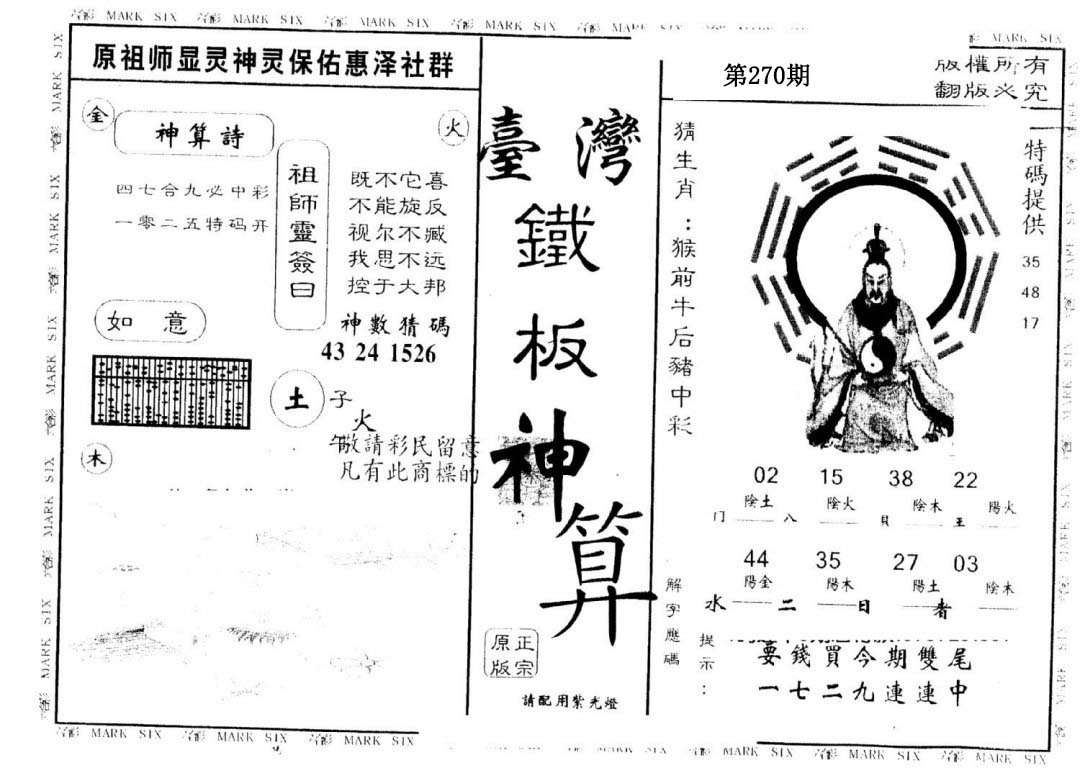 MARK SIX MARK SIX MARK SIX MARK SIX MARK SIX
原祖师显灵神灵保佑惠泽社群
金
神算詩
火
四七合九必中彩
一零二五特码开
祖師靈簽曰
既不它喜
不能旋反
视尔不臧
我思不远
控于大邦
如意
神數猜碼
43 24 1526
土
子
火
午敬請彩民留意
凡有此商標的
木
臺灣
鐵
板
神
算
正宗
原版
請配用紫光燈
第270期
版權所有
翻版必究
猜生肖：猴前牛后豬中彩
特碼提供
35
48
17
02 15 38 22
陰土 陰火 陰木 陽火
门 八 貝 王
44 35 27 03
陽金 陽木 陽土 陰木
水 二 日 者
解字應碼
提示：
要錢買今期雙尾
一七二九連連中
MARK SIX MARK SIX MARK SIX MARK SIX MARK SIX MARK SIX